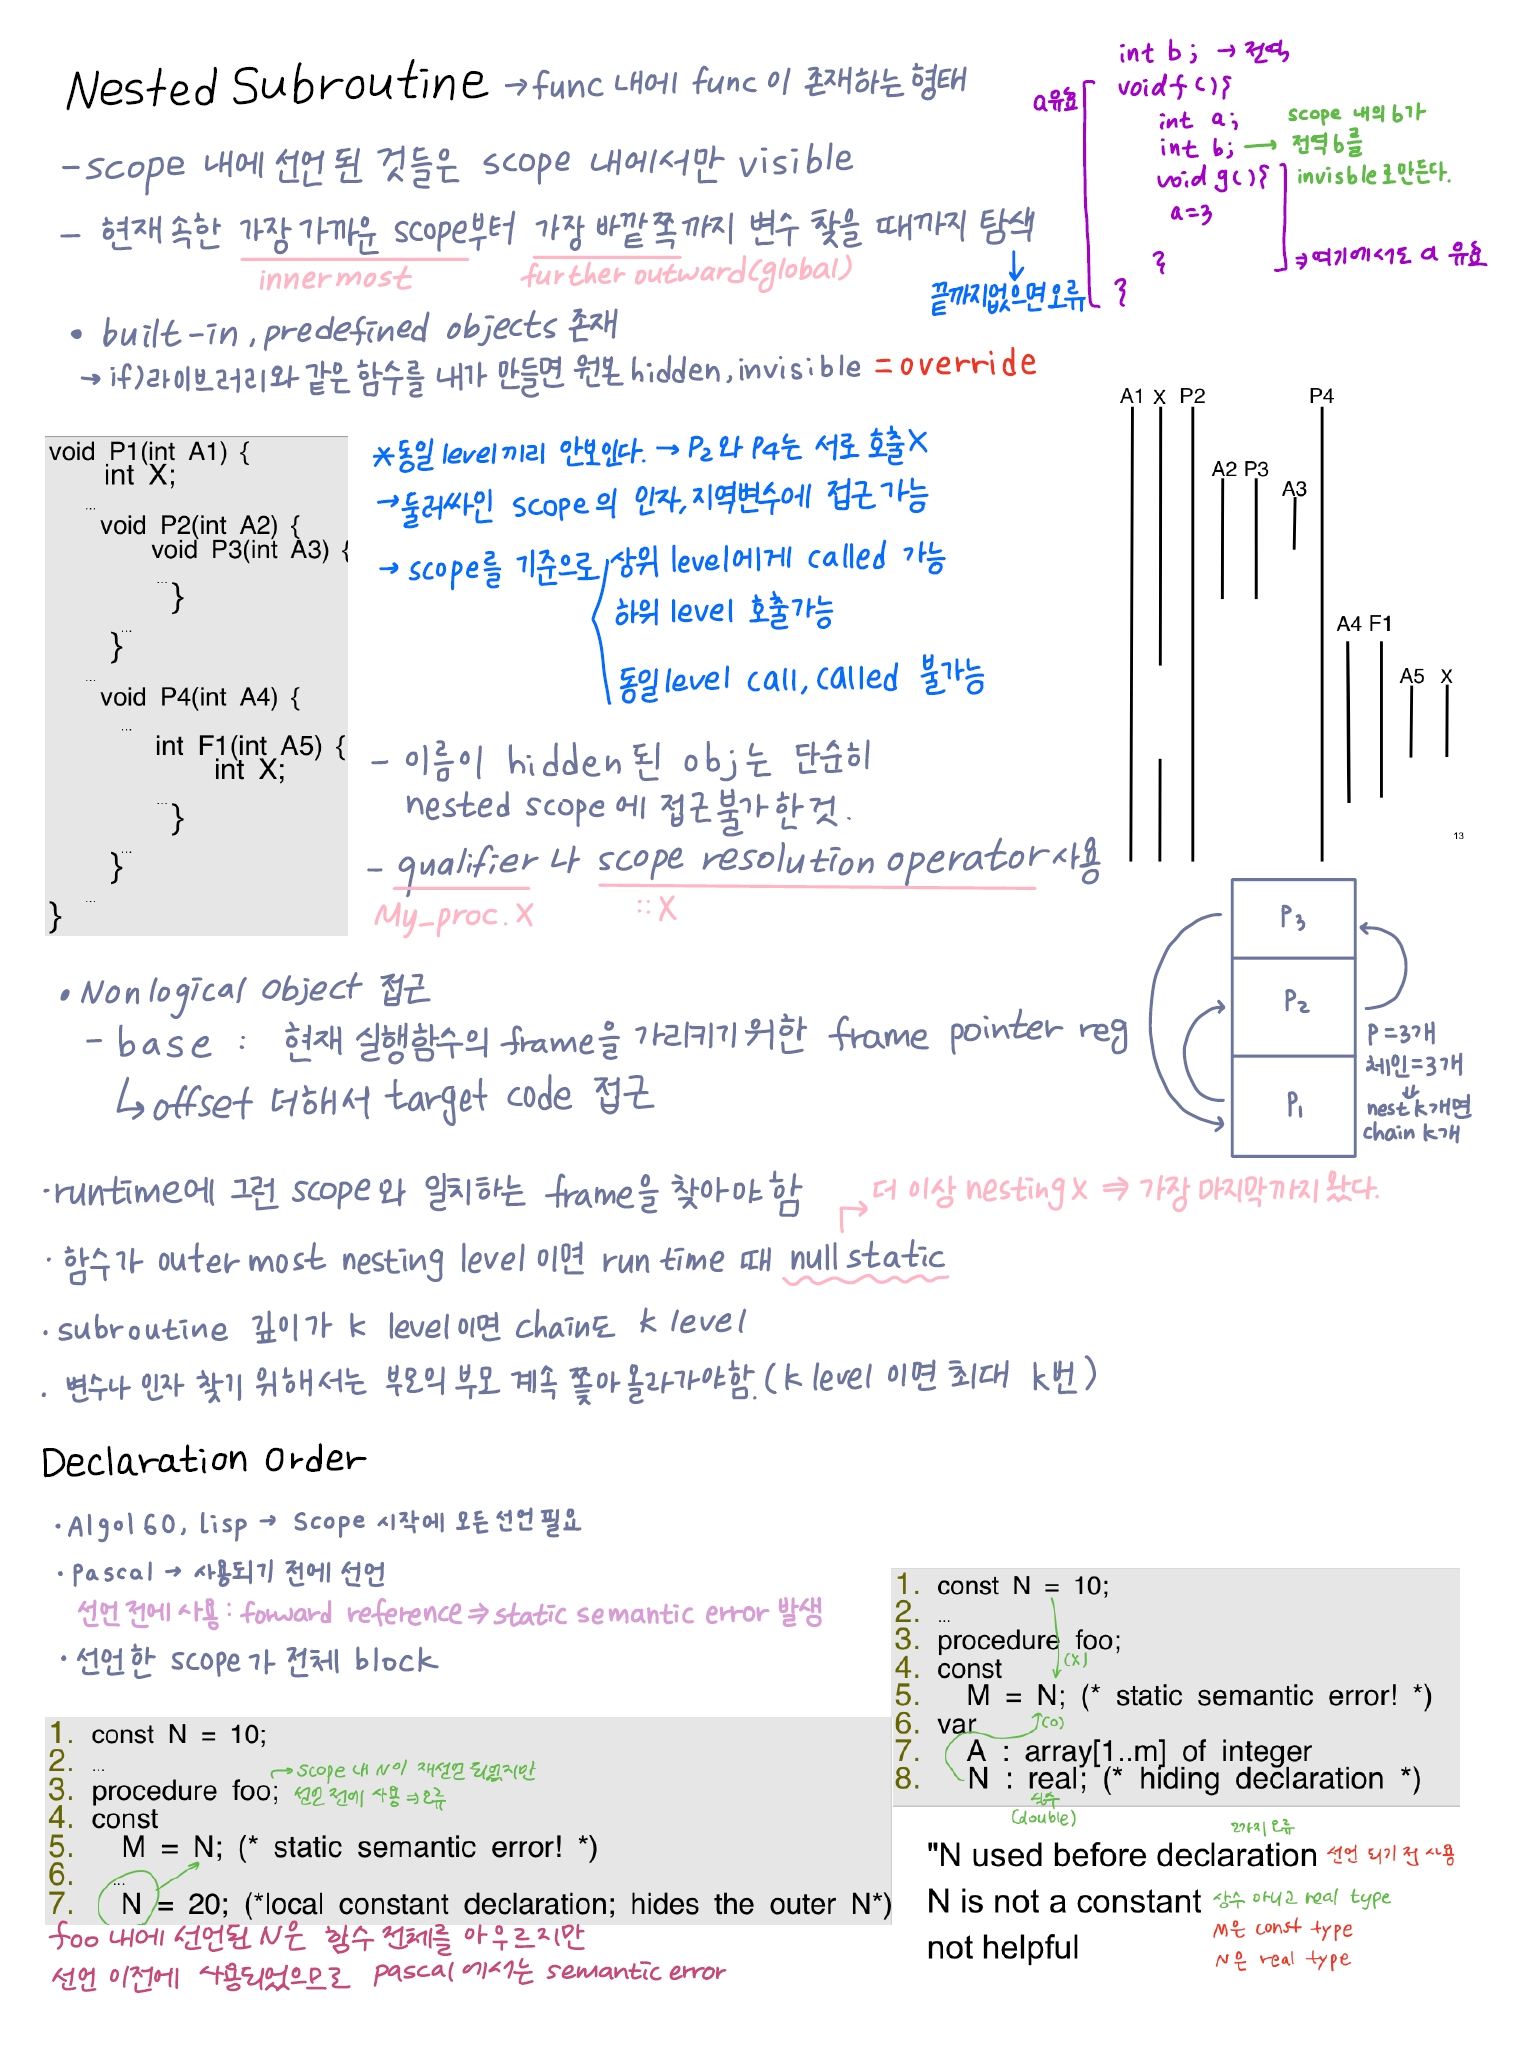 Nested Subroutine → func 내에 func 이 존재하는 형태
- scope 내에 선언 된 것들은 scope 내에서만 visible
- 현재 속한 가장 가까운 scope부터 가장 바깥쪽까지 변수 찾을 때까지 탐색
innermost
further outward(global)
↓
끝까지없으면 오류
int b; → 전역
a유효
void f(){
int a;
int b; →
scope 내의 b가
전역 b를
invisble로만든다.
void g(){
a=3
}
⇒여기에서도 a 유효
}
• built-in, predefined objects 존재
→ if)라이브러리와 같은 함수를 내가 만들면 원본 hidden, invisible = override
void P1(int A1) {
int X;
...
void P2(int A2) {
void P3(int A3) {
...
}
...
}
...
void P4(int A4) {
...
int F1(int A5) {
int X;
...
}
...
}
...
}
*동일 level끼리 안보인다. → P2와 P4는 서로 호출X
→둘러싸인 scope의 인자, 지역변수에 접근 가능
→ scope를 기준으로 상위 level에게 called 가능
하위 level 호출가능
동일level call, called 불가능
A1 X P2 P4
A2 P3
A3
A4 F1
A5 X
13
- 이름이 hidden 된 obj는 단순히
nested scope에 접근불가한것.
- qualifier 나 scope resolution operator 사용
My_proc. X
:: X
P3
P2
P1
P=3개
체인=3개
⇓
nest k개면
chain k개
• Nonlogical object 접근
- base : 현재 실행함수의 frame을 가리키기 위한 frame pointer reg
↳ offset 더해서 target code 접근
·runtime에 그런 scope와 일치하는 frame을 찾아야 함
더 이상 nesting X ⇒ 가장 마지막까지 왔다.
· 함수가 outermost nesting level 이면 run time 때 null static
· subroutine 깊이가 k level이면 chain도 k level
· 변수나 인자 찾기 위해서는 부모의 부모 계속 쫓아 올라가야함. (k level 이면 최대 k번)
Declaration Order
· Algol 60, lisp → Scope 시작에 모든 선언 필요
· Pascal → 사용되기 전에 선언
선언 전에 사용 : forward reference ⇒ static semantic error 발생
· 선언한 scope가 전체 block
1. const N = 10;
2. ...
3. procedure foo;
→ scope 내 N이 재선언 되었지만
선언 전에 사용 ⇒ 오류
4. const
5. M = N; (* static semantic error! *)
6. ...
7. N = 20; (*local constant declaration; hides the outer N*)
foo 내에 선언된 N은 함수 전체를 아우르지만
선언 이전에 사용되었으므로 pascal 에서는 semantic error
1. const N = 10;
2. ...
3. procedure foo;
4. const
(X)
5. M = N; (* static semantic error! *)
6. var
(O)
7. A : array[1..m] of integer
8. N : real; (* hiding declaration *)
실수
(double)
2가지 오류
"N used before declaration 선언 되기 전 사용
N is not a constant 상수 아니고 real type
M은 const type
not helpful
N은 real type